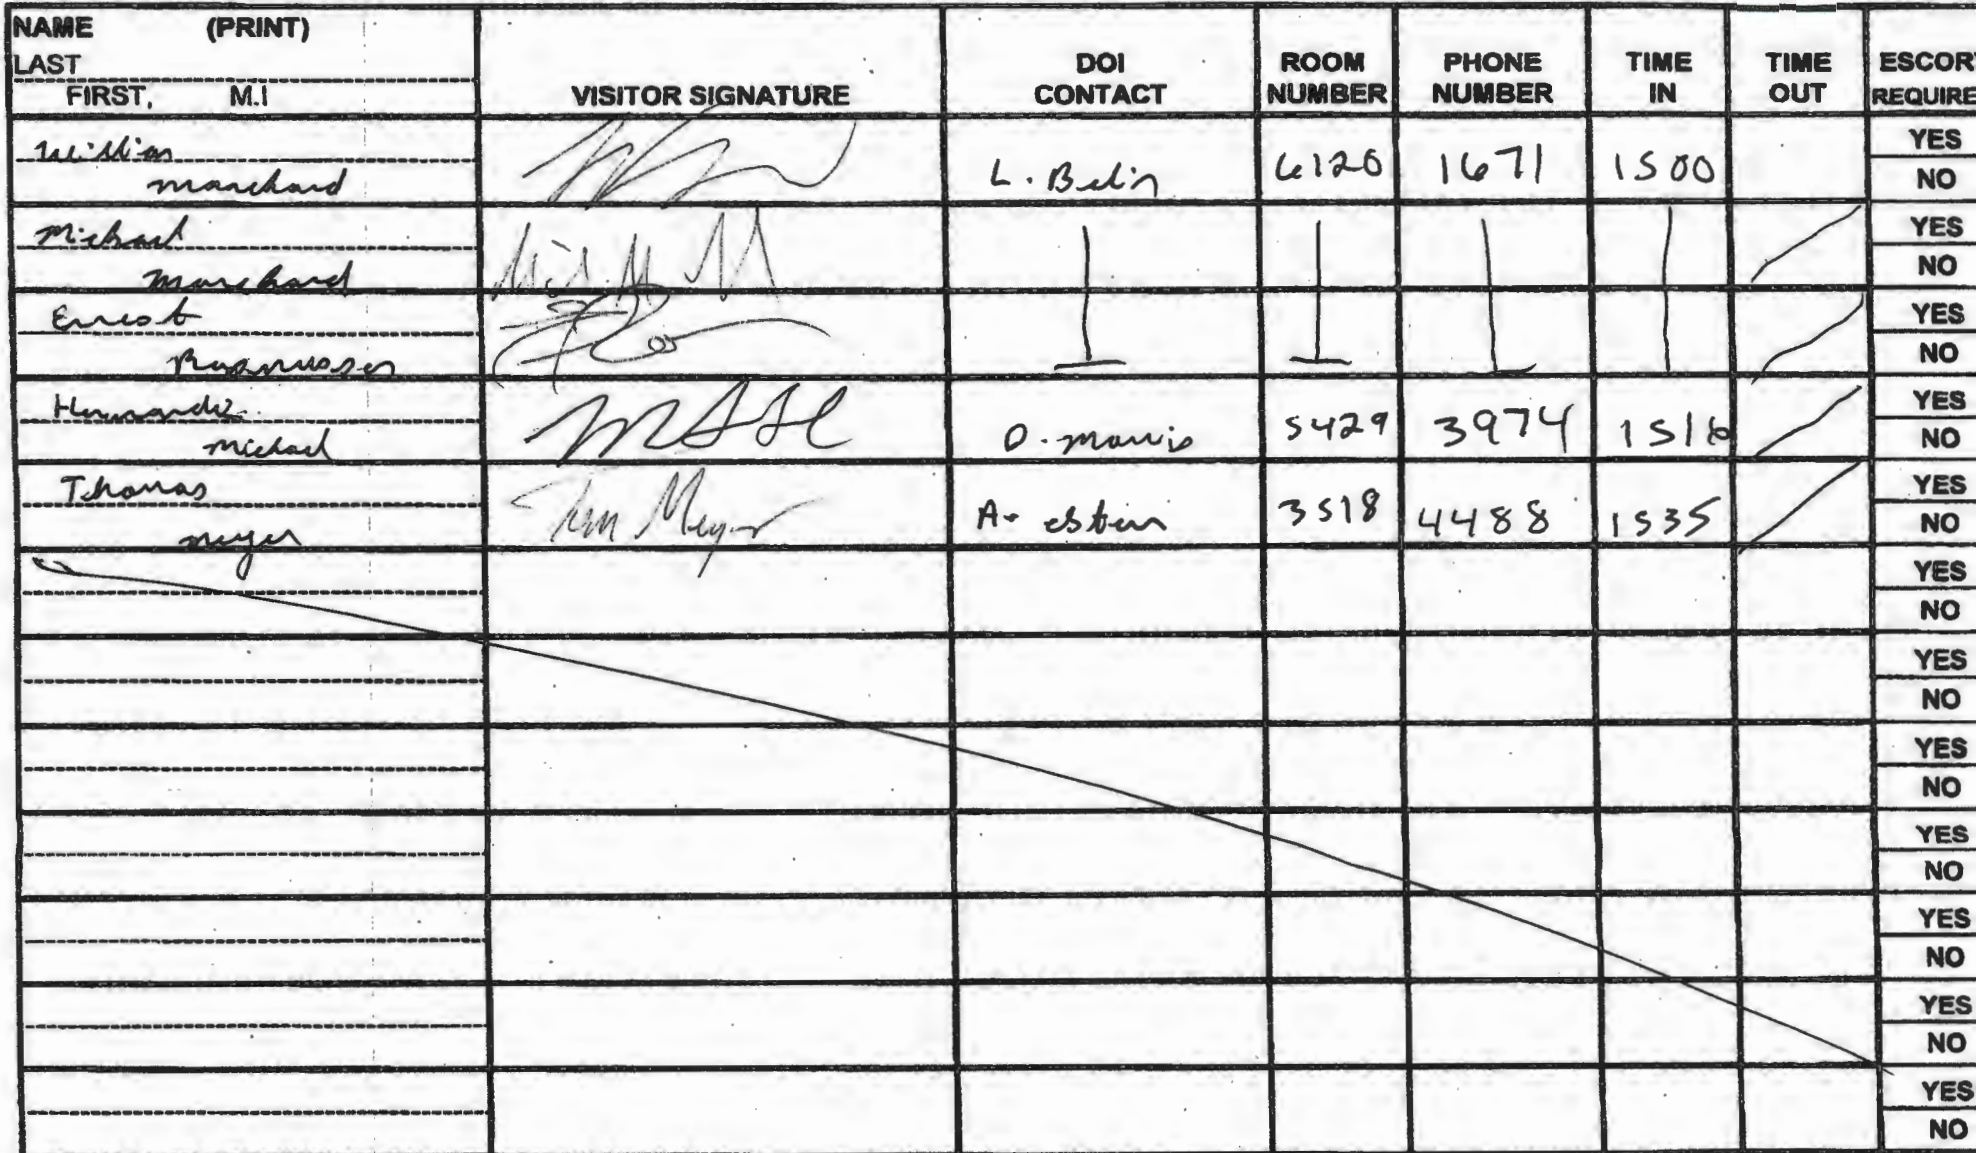 NAME (PRINT)
LAST
FIRST, M.I
VISITOR SIGNATURE
DOI CONTACT
ROOM NUMBER
PHONE NUMBER
TIME IN
TIME OUT
ESCOR
REQUIRE
William
marchand
L. Belin
6120
1671
1500
YES
NO
Michael
marchand
YES
NO
Ernest
Rasmussen
YES
NO
Hernandez
michael
D. morris
5429
3974
YES
NO
Thomas
meyer
Tom Meyer
3518
4488
1535
YES
NO
YES
NO
YES
NO
YES
NO
YES
NO
YES
NO
YES
NO
YES
NO